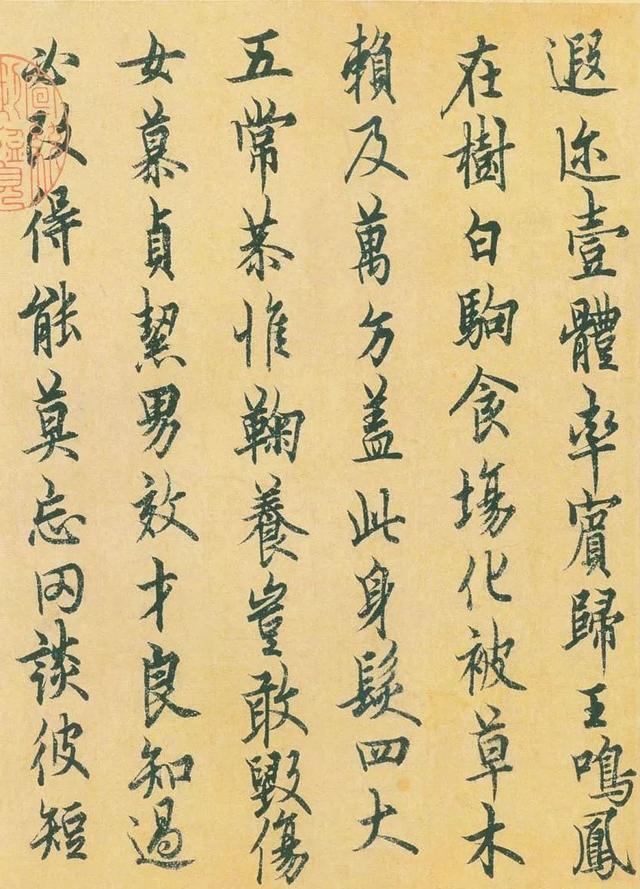 遐迩壹體率賓歸王鳴鳳
在樹白駒食塲化被草木
賴及萬方盖此身髮四大
五常恭惟鞠養豈敢毀傷
女慕貞絜男效才良知過
必改得能莫忘罔談彼短